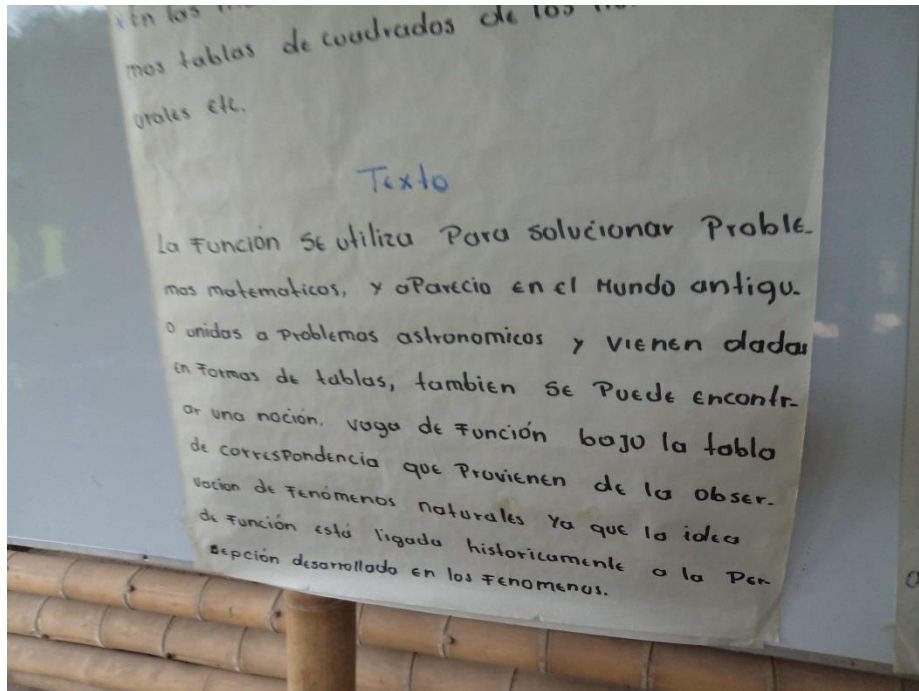 en las
mas tablas de cuadrados de los
urales etc.
Texto
La Función se utiliza Para solucionar Proble-
mas matematicos, y aParecio en el Mundo antigu-
o unidas a Problemas astronomicos y vienen dadas
en Formas de tablas, tambien se Puede encontr-
ar una noción, vaga de Función bajo la tabla
de corresPondencia que Provienen de la obser-
vacion de Fenómenos naturales Ya que la idea
de Función está ligada historicamente a la Per
sepción desarrollada en los Fenomenos.